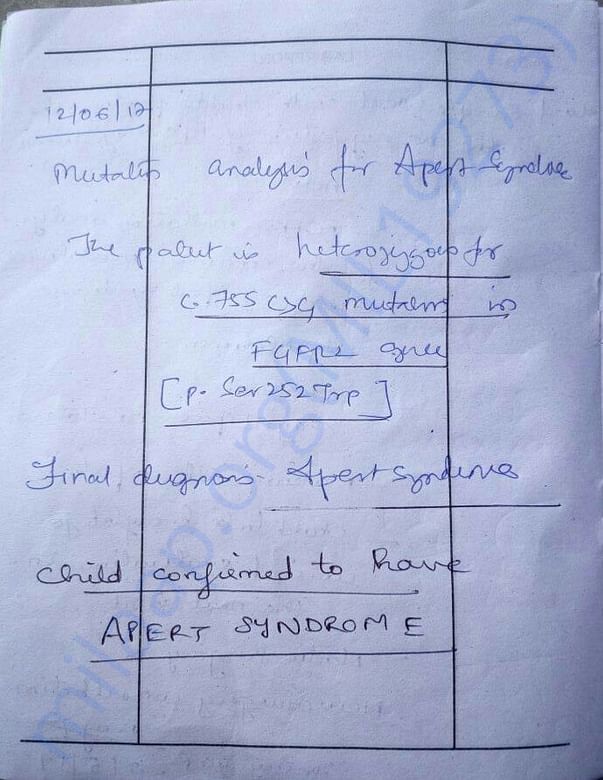 12/06/17
Mutation analysis for Apert Syndrome
The patient is heterozygous for
c.755 C>G mutations in
FGFR2 gene
[p. Ser252Trp]
Final diagnosis - Apert syndrome
child confirmed to have
APERT SYNDROME
milaap.org(MIL_19273)